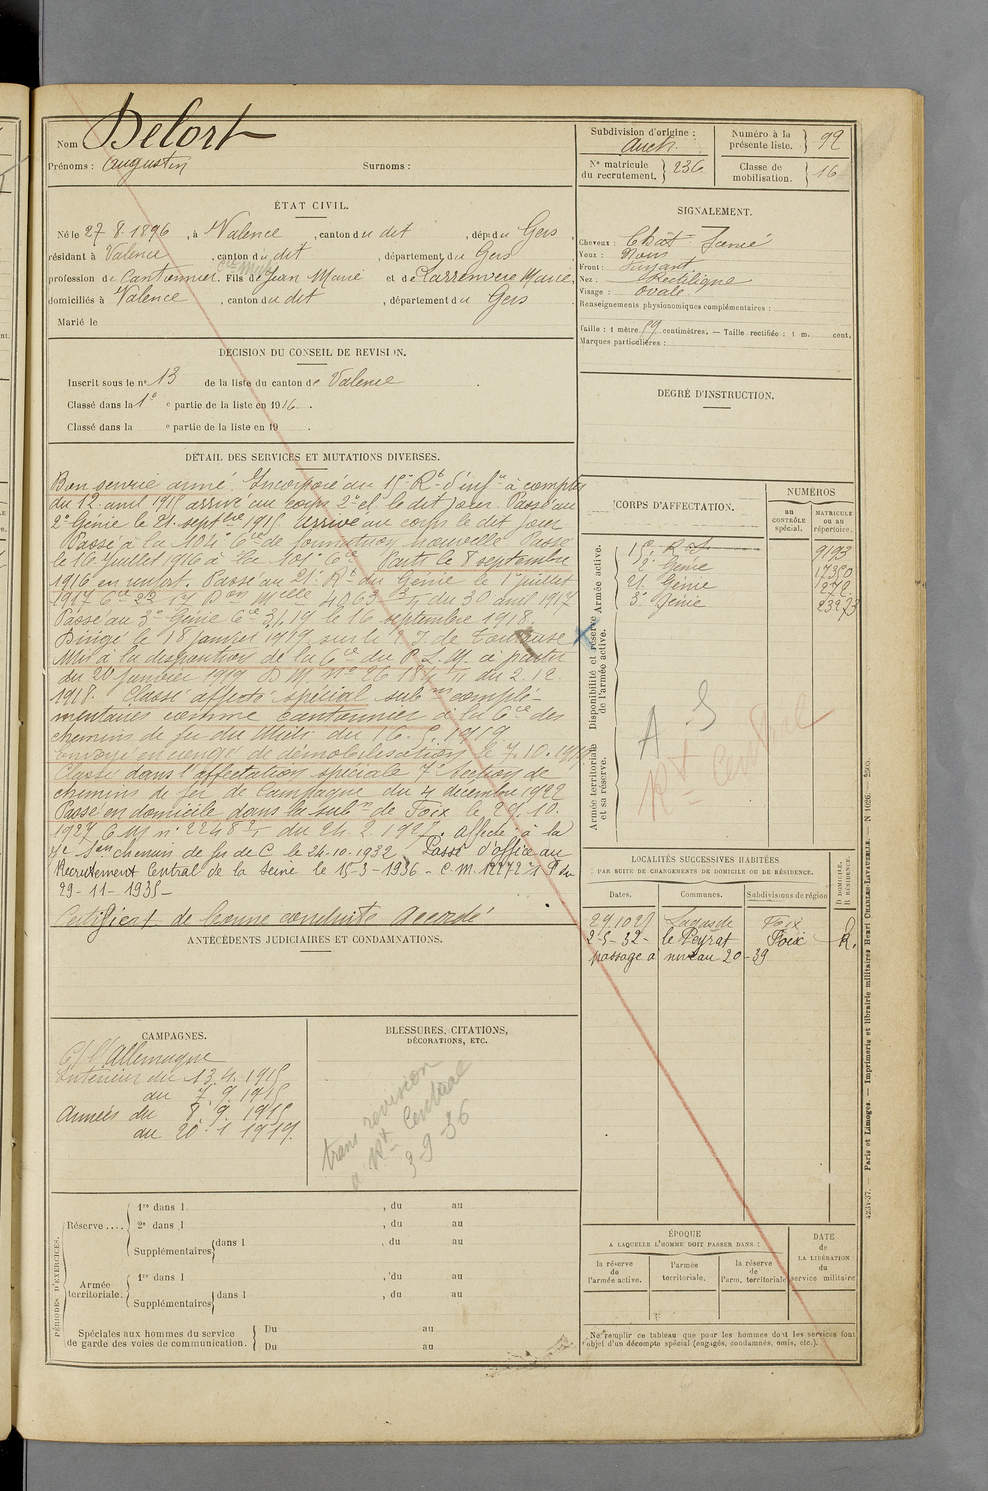 Nom Delort
Prénoms : Augustin Surnoms :
ÉTAT CIVIL.
Né le 27.8.1896, à Valence, canton du dit, dép. du Gers,
résidant à Valence, canton du dit, département du Gers
profession de Cantonnier. Fils de Jean Marie et de Larrenvere Marie,
domiciliés à Valence, canton du dit, département du Gers
Marié le
DÉCISION DU CONSEIL DE REVISION.
Inscrit sous le n° 13 de la liste du canton de Valence.
Classé dans la 1e e partie de la liste en 1916.
Classé dans la e partie de la liste en 19 .
DÉTAIL DES SERVICES ET MUTATIONS DIVERSES.
Bon service armé. Incorporé au 15e Rt d'infie à compter
du 12 avril 1915 arrivé au corps 2e cl. le dit jour. Passé au
2e Génie le 21 septbre 1915 Arrivé au corps le dit jour
Passé à la 104e Cie de formation nouvelle Passé
le 16 juillet 1916 à la 101e Cie. Parti le 8 septembre
1916 en renfort. Passé au 21e Rt du Génie le 1er juillet
1917 Cie 2/3 17 Bon Mlle 4063 3/4 du 30 avril 1917
Passé au 3e Génie Cie 31/19 le 16 septembre 1918.
Dirigé le 18 janvier 1919 sur le D. I. de Toulouse
Mis à la disposition de la Cie du P. L. M. à partir
du 20 janvier 1919 D M N° 26 184 du 2.12
1918. Classé affecté spécial subons complé-
mentaires comme cantonnier à la Cie des
chemins de fer du Midi du 16.5.1919
Envoyé en congé de démobilisation le 7.10.1919.
Classé dans l'affectation spéciale 7e Section de
chemins de fer de Campagne du 4 décembre 1922
Passé en domicile dans la subon de Foix le 29.10.
1927 C M n° 2248 du 24.2.1927. affecté à la
7e Son chemin de fer de C le 24-10-1932. Passé d'office au
Recrutement Central de la Seine le 15-3-1936 - C. M. 12272 1 P du
29-11-1935-
Certificat de bonne conduite Accordé
ANTÉCÉDENTS JUDICIAIRES ET CONDAMNATIONS.
CAMPAGNES.
C/ l'Allemagne
Intérieur du 13.4.1915
au 7.9.1915
Armées du 8.9.1915
au 20.1 1919.
BLESSURES, CITATIONS,
DÉCORATIONS, ETC.
trans revision
à Rt Central
3 9 36
PÉRIODES D'EXERCICES.
Réserve .... 1re dans l , du au
2e dans l , du au
Supplémentaires dans l , du au
Armée territoriale. 1re dans l , du au
Supplémentaires dans l , du au
Spéciales aux hommes du service
de garde des voies de communication. Du au
Du au
Subdivision d'origine :
Auch.
Numéro à la
présente liste. 92
N° matricule
du recrutement. 236
Classe de
mobilisation. 16
SIGNALEMENT.
Cheveux : Chât foncé
Yeux : Noirs
Front : Fuyant
Nez : Rectiligne
Visage : Ovale
Renseignements physionomiques complémentaires :
Taille : 1 mètre 59 centimètres. — Taille rectifiée : 1 m. cent.
Marques particulières :
DEGRÉ D'INSTRUCTION.
CORPS D'AFFECTATION.
NUMÉROS
au
CONTRÔLE
spécial.
MATRICULE
ou au
répertoire.
Armée active.
15e R I 9193
2e Génie 17350
21 Génie 272
3e Génie 23273
Disponibilité et réserve
de l'armée active.
A S
Rt Central
Armée territoriale
et sa réserve.
LOCALITÉS SUCCESSIVES HABITÉES
PAR SUITE DE CHANGEMENTS DE DOMICILE OU DE RÉSIDENCE.
Dates. Communes. Subdivisions de région
D DOMICILE.
R RÉSIDENCE.
29.10 27 Lagarde Foix
2-5-32- le Peyrat Foix R.
passage à niveau 20-39
ÉPOQUE
A LAQUELLE L'HOMME DOIT PASSER DANS :
la réserve
de
l'armée active.
l'armée
territoriale.
la réserve
de
l'arm. territoriale
DATE
de
LA LIBÉRATION
du
service militaire
Ne remplir ce tableau que pour les hommes dont les services font
l'objet d'un décompte spécial (engagés, condamnés, omis, etc.).
4234-37. — Paris et Limoges. — Imprimerie et librairie militaires Henri CHARLES-LAVAUZELLE. — N 1026.